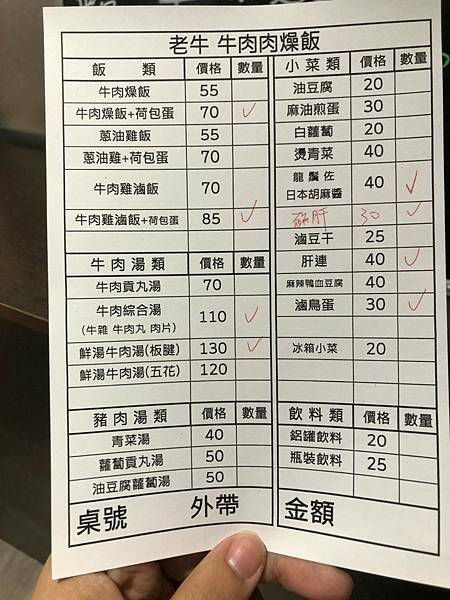 老牛 牛肉肉燥飯
飯 類 價格 數量
牛肉燥飯 55
牛肉燥飯+荷包蛋 70 ✓
蔥油雞飯 55
蔥油雞+荷包蛋 70
牛肉雞滷飯 70
牛肉雞滷飯+荷包蛋 85 ✓
牛肉湯類 價格 數量
牛肉貢丸湯 70
牛肉綜合湯 110 ✓
(牛雜 牛肉丸 肉片)
鮮湯牛肉湯(板腱) 130 ✓
鮮湯牛肉湯(五花) 120
豬肉湯類 價格 數量
青菜湯 40
蘿蔔貢丸湯 50
油豆腐蘿蔔湯 50
桌號 外帶
小菜類 價格 數量
油豆腐 20
麻油煎蛋 30
白蘿蔔 20
燙青菜 40
龍鬚佐
日本胡麻醬 40 ✓
肝 30 ✓
滷豆干 25
肝連 40 ✓
麻辣鴨血豆腐 40
滷鳥蛋 30 ✓
冰箱小菜 20
飲料類 價格 數量
鋁罐飲料 20
瓶裝飲料 25
金額